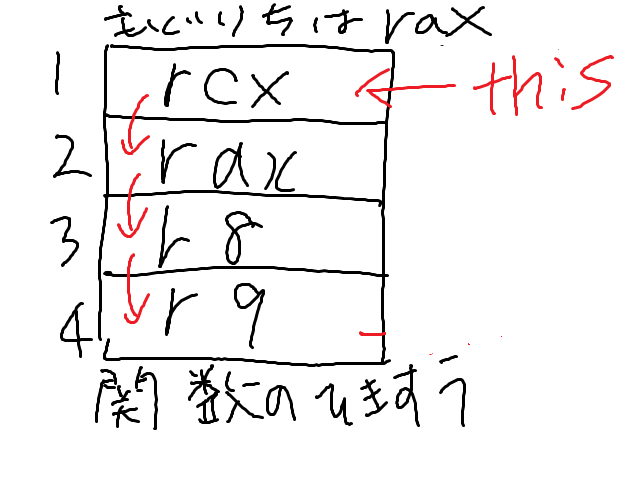 もどりちは rax
1 rcx ← this
2 rax
3 r8
4 r9
関数のひきすう